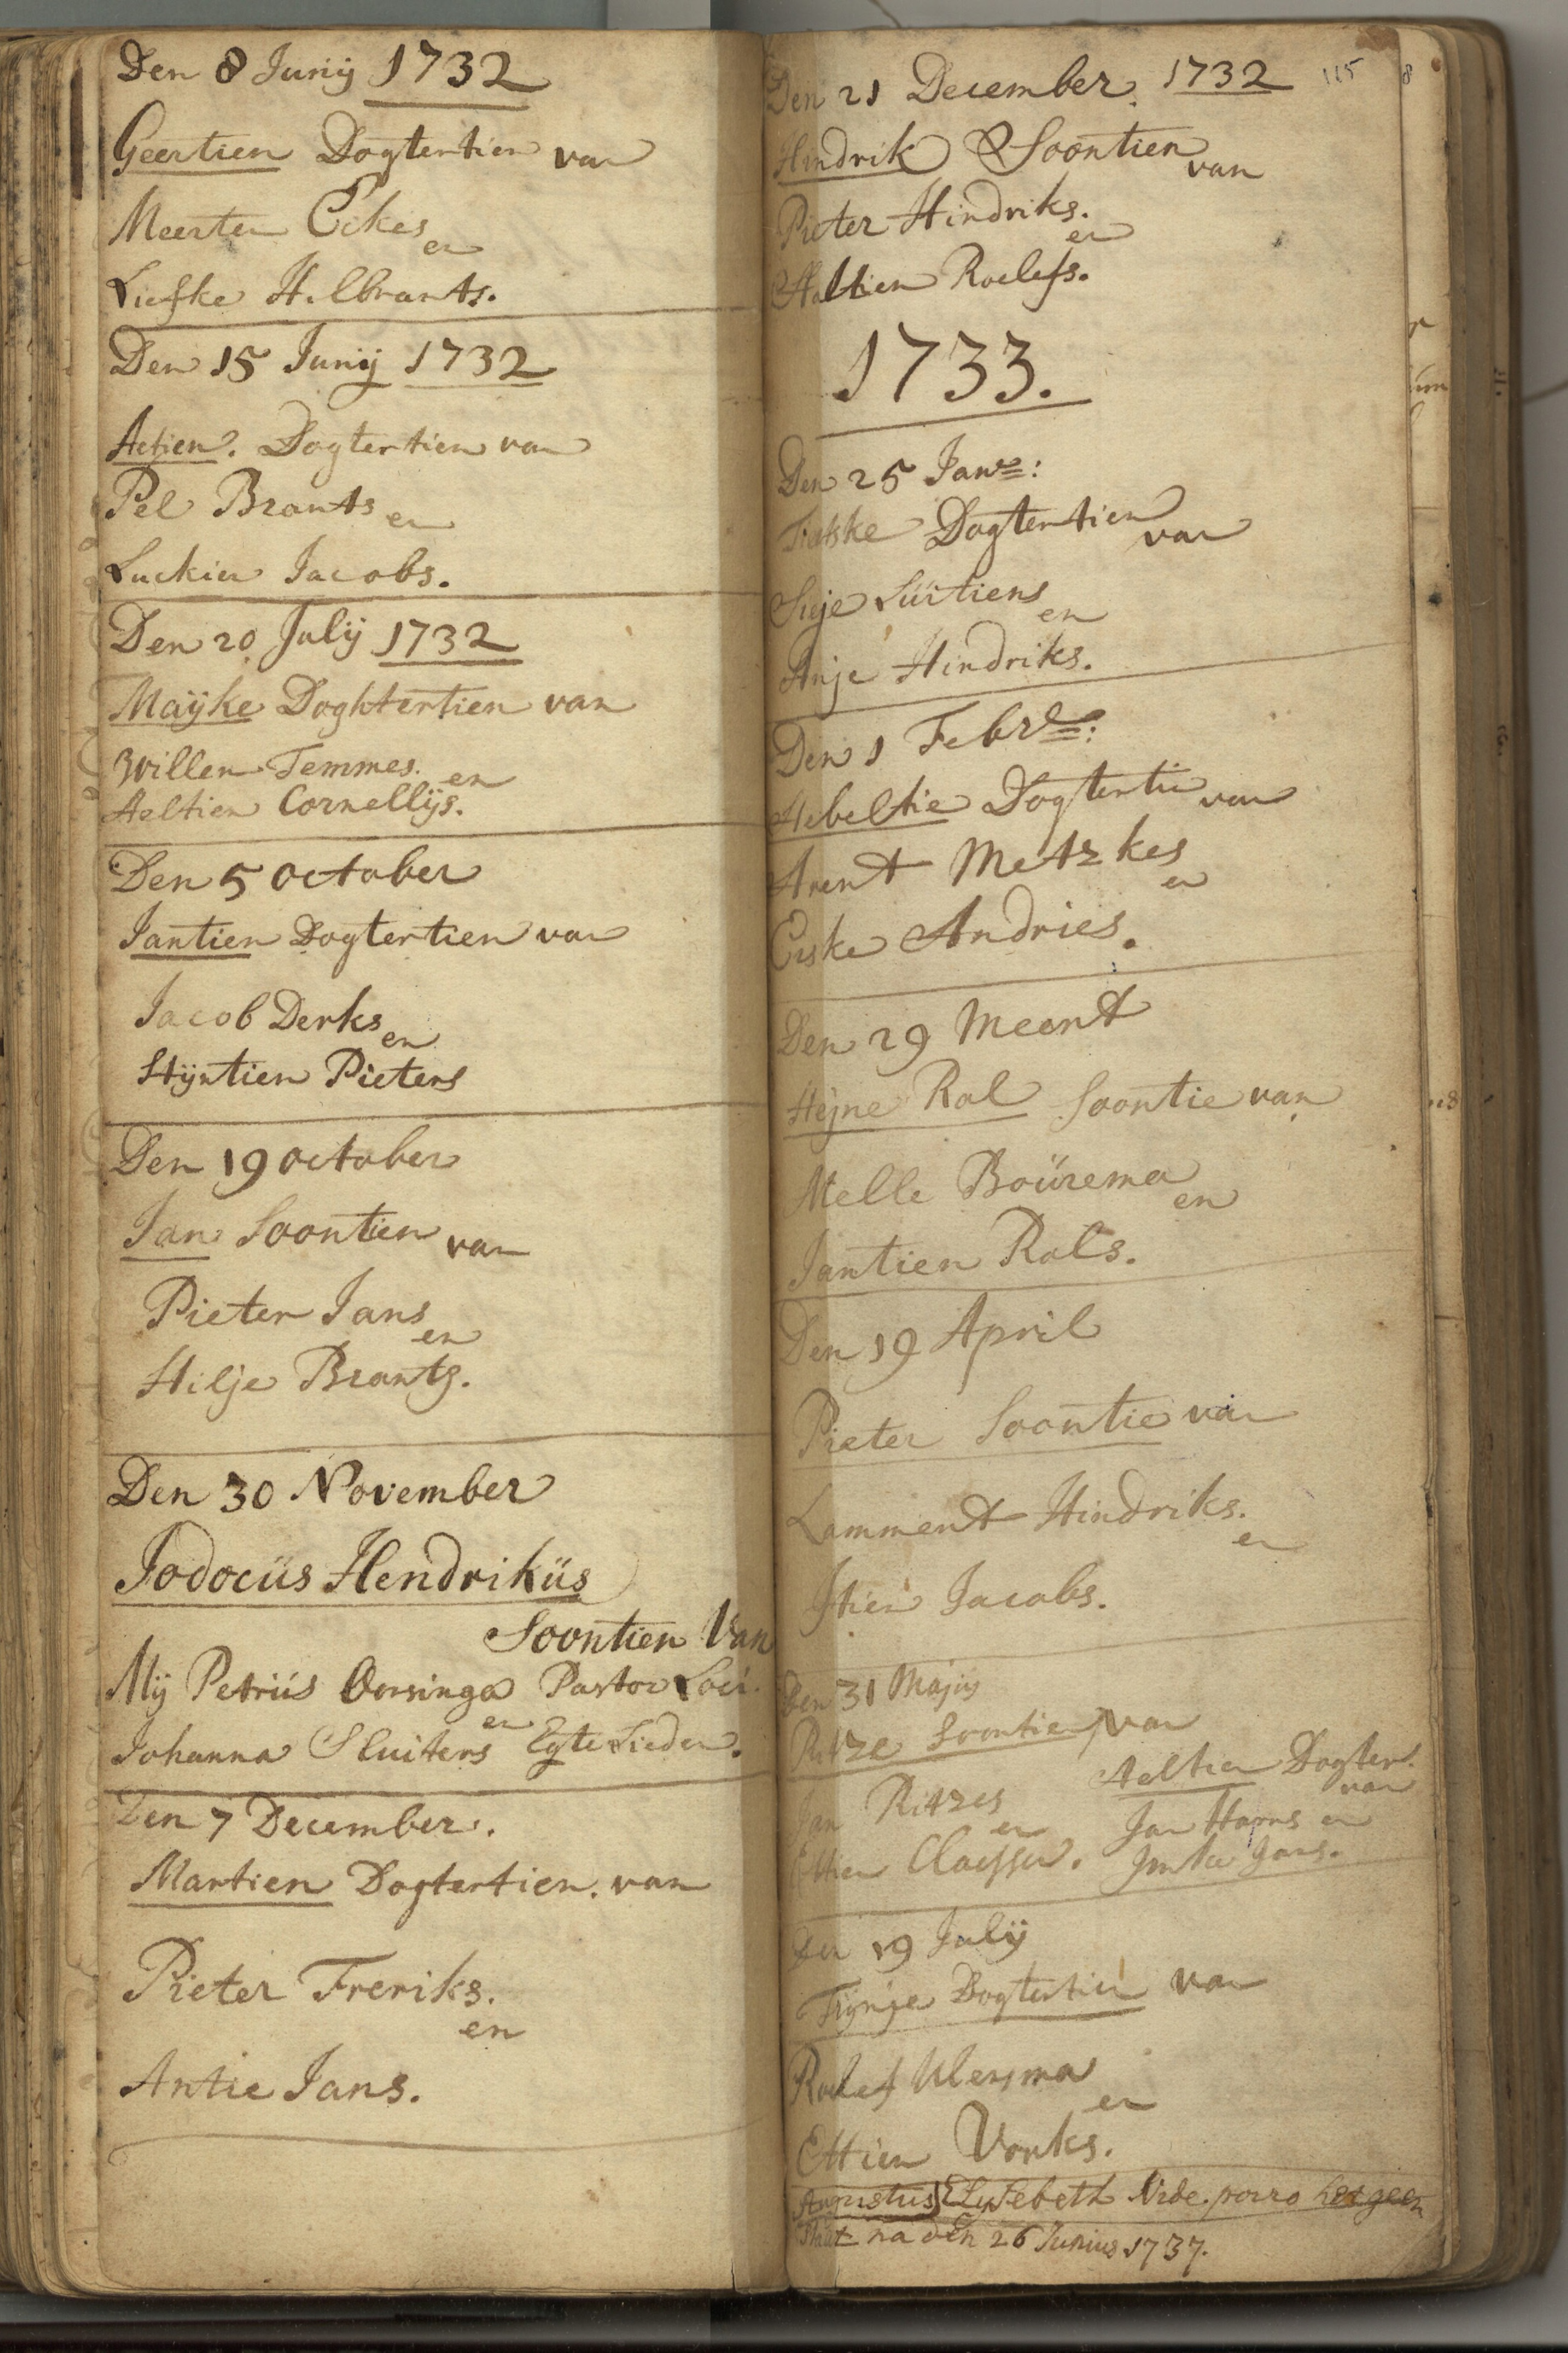 Den 8 Junij 1732
Geertien Dogtertien van
Meerten Eekes
en
Liefke Hilbrants.
Den 15 Junij 1732
Aefien. Dogtertien van
Pel Brants en
Luckien Jacobs.
Den 20 Julij 1732
Maijke Doghtertien van
Willem Temmes. en
Aeltien Cornellijs.
Den 5 October
Jantien Dogtertien van
Jacob Derks
en
Stijntien Pieters
Den 19 October
Jan Soontien van
Pieter Jans
en
Hilje Brants.
Den 30 November
Jodocüs Hendriküs
Soontien Van
Mij Petrüs Oorsinga Pastor Loci.
en
Johanna Sluiters Egte Lieden.
Den 7 December.
Martien Dogtertien. van
Pieter Freriks.
en
Antie Jans.
115
Den 21 December 1732
Hindrik Soontien van
Pieter Hindriks.
en
Aaltien Roelefs.
1733.
Den 25 Janre:
Dogtertien van
Lüitiens
en
Anje Hindriks.
Den 1 Febre:
Hebeltie Dogtertie van
Arent Metzkes
en
Eiske Andries.
Den 29 Meert
Heijne Ral Soontie van
Melle Boürema
en
Jantien Rals.
Den 19 April
Pieter Soontie van
Lammert Hindriks.
en
Itien Jacobs.
Den 31 Majus
Ritze Soontien van
Jan Ritzes
en
Ettien Claessen.
Aeltien Dogter.
van
Jan Harms en
Imke Jans.
Den 19 Julij
Trijnje Dogtertien van
Roelef Ulersma
en
Ettien Vonks.
Augustus Elysebeth Vide. porro het geen
staat na den 26 Junius 1737.